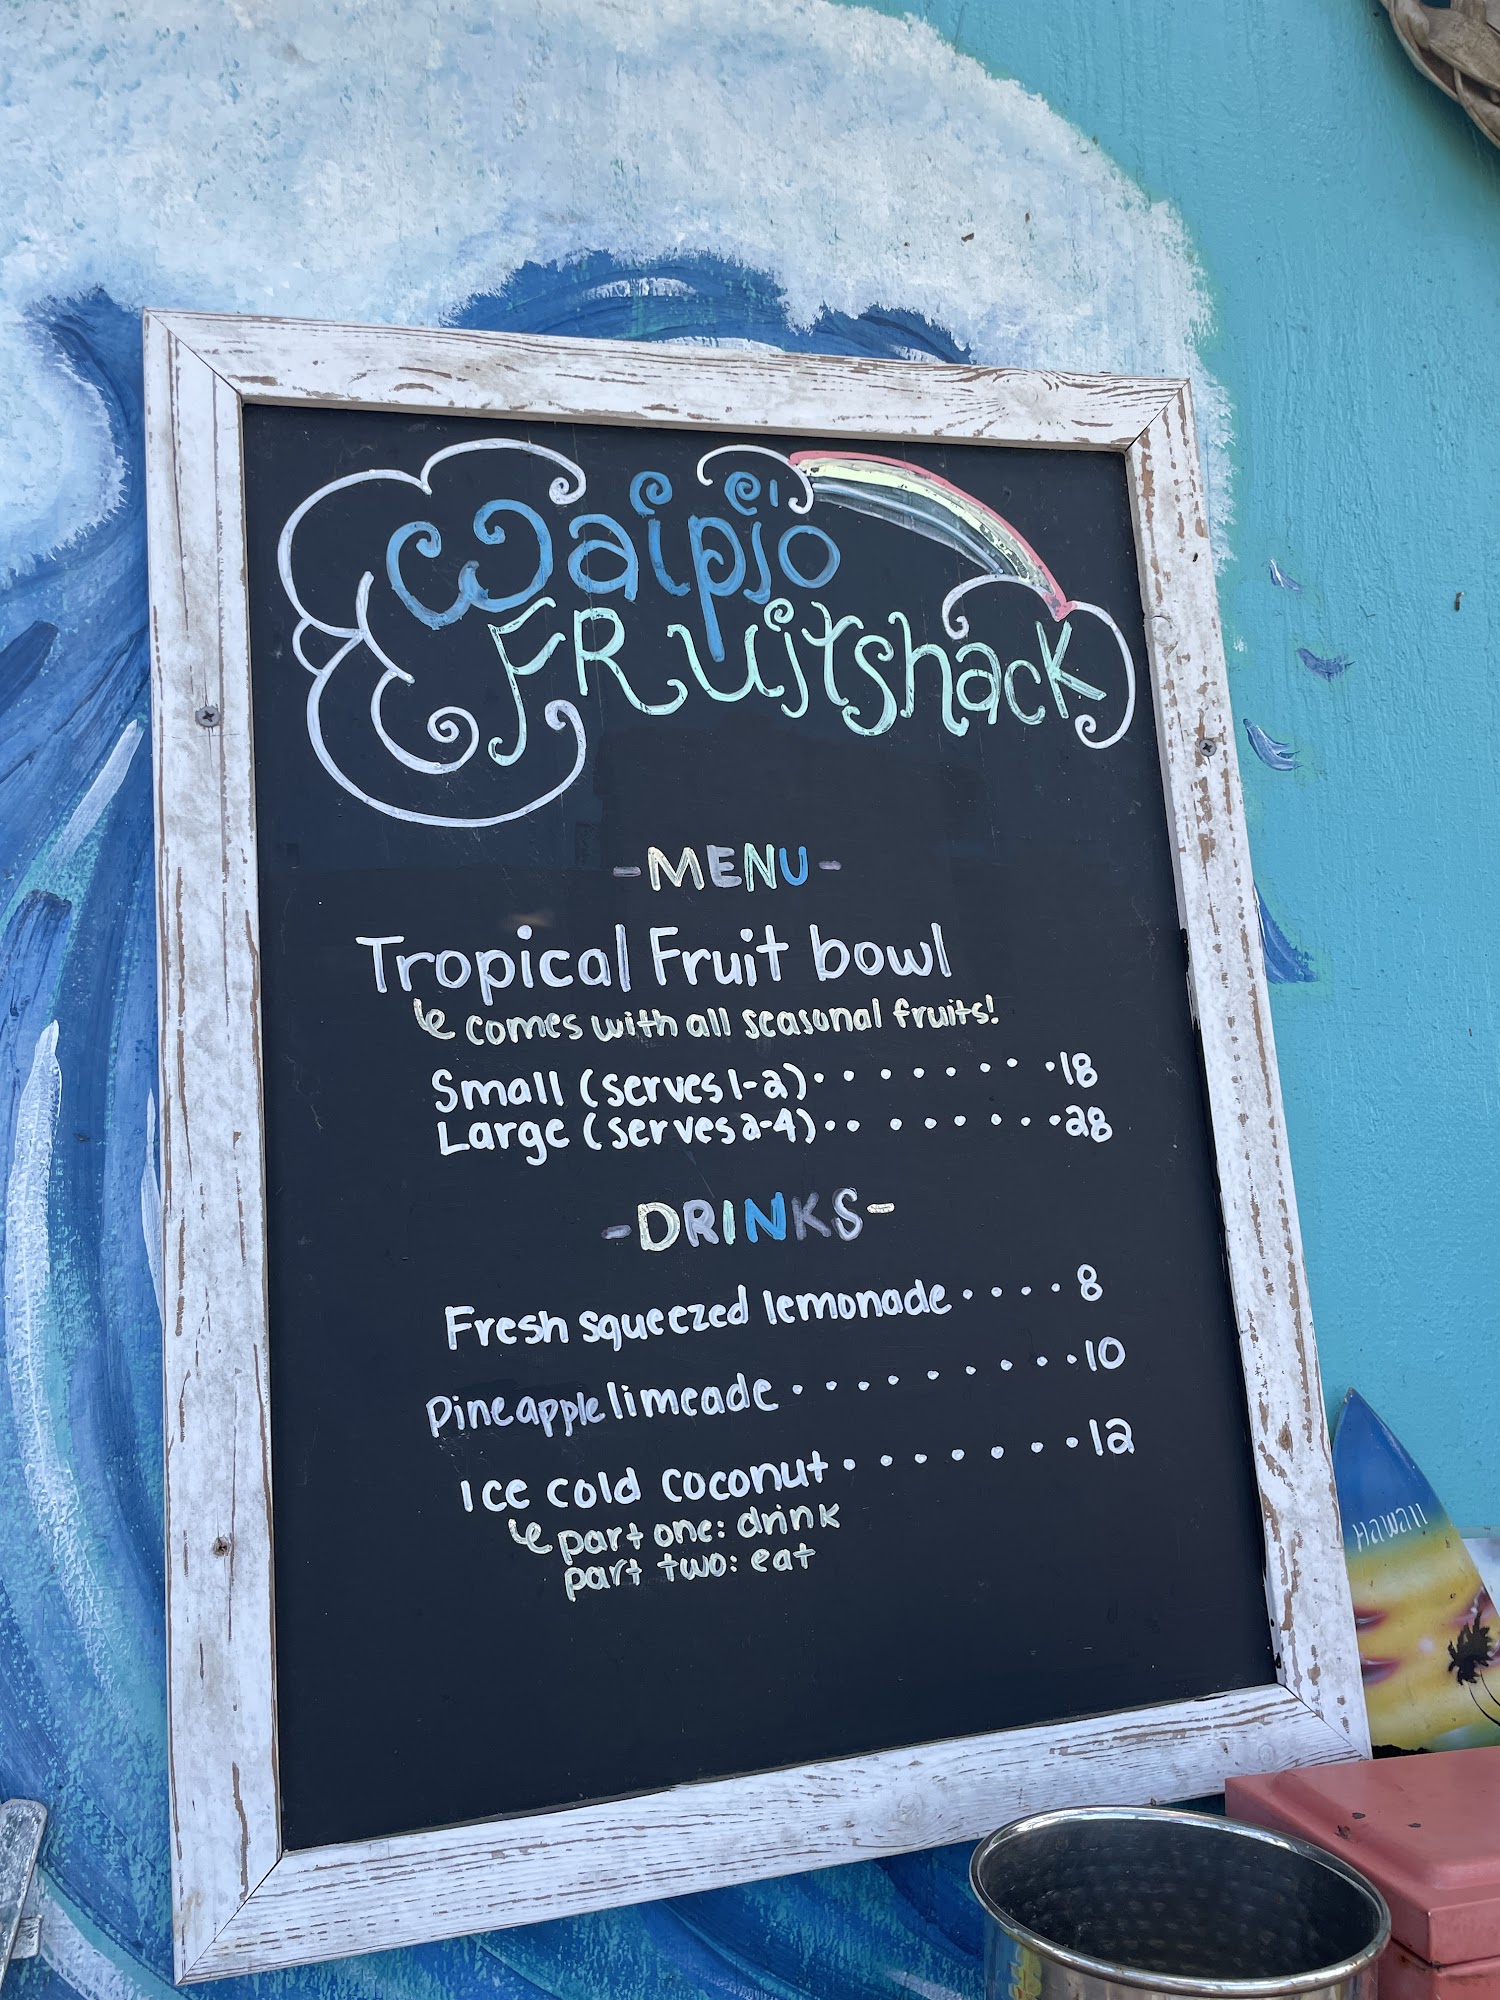 Waipi'o
FRuitshack
-MENU-
Tropical Fruit bowl
comes with all seasonal fruits!
Small (serves 1-2)········18
Large (serves 2-4)·········28
-DRINKS-
Fresh squeezed lemonade····8
Pineapple limeade·········10
Ice cold coconut········12
part one: drink
part two: eat
Hawaii